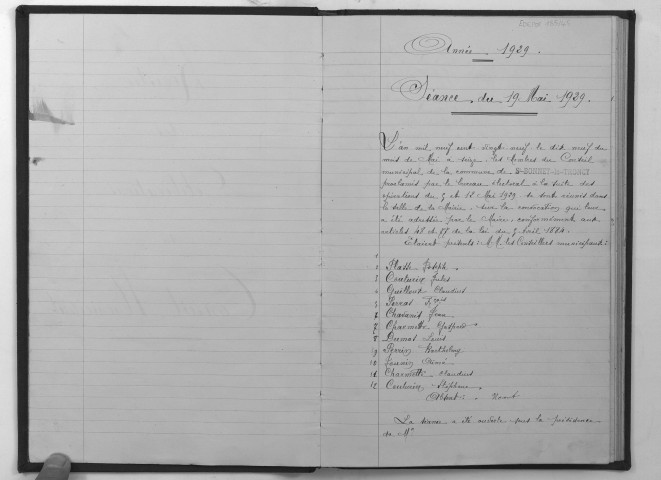 Année . 1929 .
Séance . du 19 Mai 1929 .
L'an mil neuf cent vingt neuf le dix neuf du
mois de Mai à seize , les Membres du Conseil
municipal de la commune de St-BONNET-
proclamés par le bureau électoral à la suite des
opérations du 5 et 12 Mai 1929 se sont réunis dans
la salle de la Mairie , sur la convocation qui leur
a été adressée par le Maire , conformément aux
articles 48 et 77 de la loi du 5 Avril 1884 .
Étaient présents : M.M. les Conseillers municipaux :
1
2 Platte Joseph
3 Couturier Jules
4 Claudius
5 Perras
Chavanis Jean
7 Charmette
8 Dumas Louis
9 Perrin Barthélemy
10
11 Charmette Claudius
12 Couturier Stéphane
Absent : Néant
La séance a été ouverte sous la présidence
de Mr